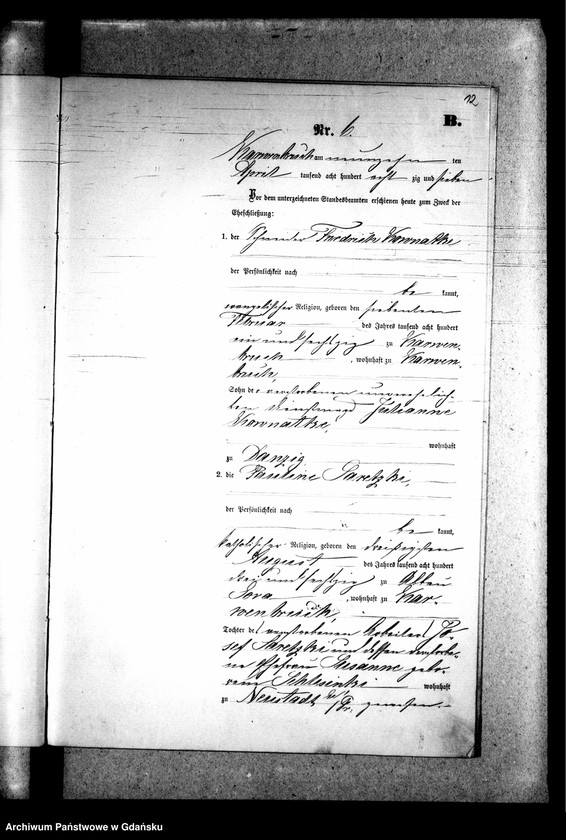 12
B.
Nr. 6.
Karwenbruch am neunzehn ten
April tausend acht hundert acht zig und sieben
Vor dem unterzeichneten Standesbeamten erschienen heute zum Zweck der
Eheschließung:
1. der Schneider Friedrich Kownatke
der Persönlichkeit nach
be kannt,
evangelischer Religion, geboren den siebenten
Februar des Jahres tausend acht hundert
ein und sechszig zu Karwen-
bruch, wohnhaft zu Karwen-
bruch,
Sohn der verstorbenen unverehelich-
ten Dienstmagd Julianne
Kownatke,
wohnhaft
zu Danzig
2. die Pauline Saretzki,
der Persönlichkeit nach
be kannt,
katholischer Religion, geboren den dreißigsten
August des Jahres tausend acht hundert
drei und sechszig zu
wohnhaft zu Kar-
wenbruch,
Tochter des verstorbenen Arbeiters Jo-
sef Saretzki und dessen verstorbe-
ne Ehefrau Susanne gebo-
rene Schlesinki wohnhaft
zu Neustadt W/Pr. gewesen.
Archiwum Państwowe w Gdańsku